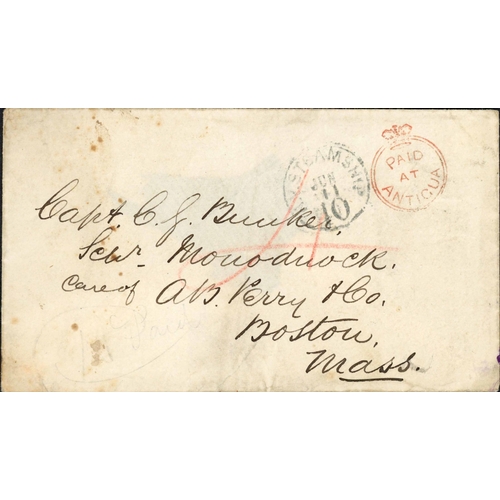 PAID
AT
ANTIGUA
STEAMSHIP
JUN
11
10
Capt. C. J. Bunker,
Schr Monodnock.
Care of A.B. Perry & Co.
Boston,
Mass.